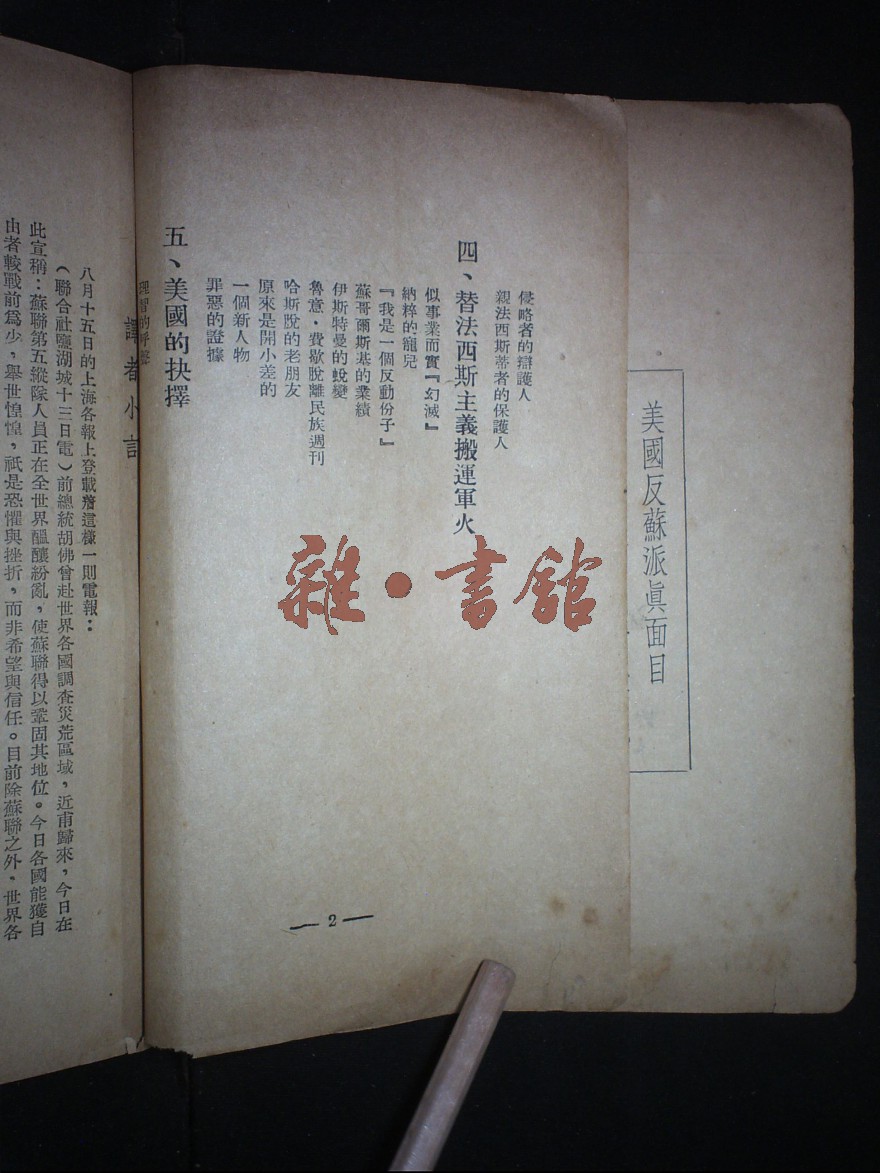 美國反蘇派眞面目
侵略者的辯護人
親法西斯蒂者的保護人
四、替法西斯主義搬運軍火
似事業而實『幻滅』
納粹的寵兒
『我是一個反動份子』
蘇哥爾斯基的業績
伊斯特曼的蛻變
魯意·費歇脫離民族週刊
哈斯脫的老朋友
原來是開小差的
一個新人物
罪惡的證據
五、美國的抉擇
理智的呼聲
— 2 —
譯者小言
八月十五日的上海各報上登載着這樣一則電報：
（聯合社鹽湖城十三日電）前總統胡佛曾赴世界各國調查災荒區域，近甫歸來，今日在
此宣稱：蘇聯第五縱隊人員正在全世界醞釀紛亂，使蘇聯得以鞏固其地位。今日各國能獲自
由者較戰前爲少，舉世惶惶，祇是恐懼與挫折，而非希望與信任。目前除蘇聯之外，世界各
雜·書館